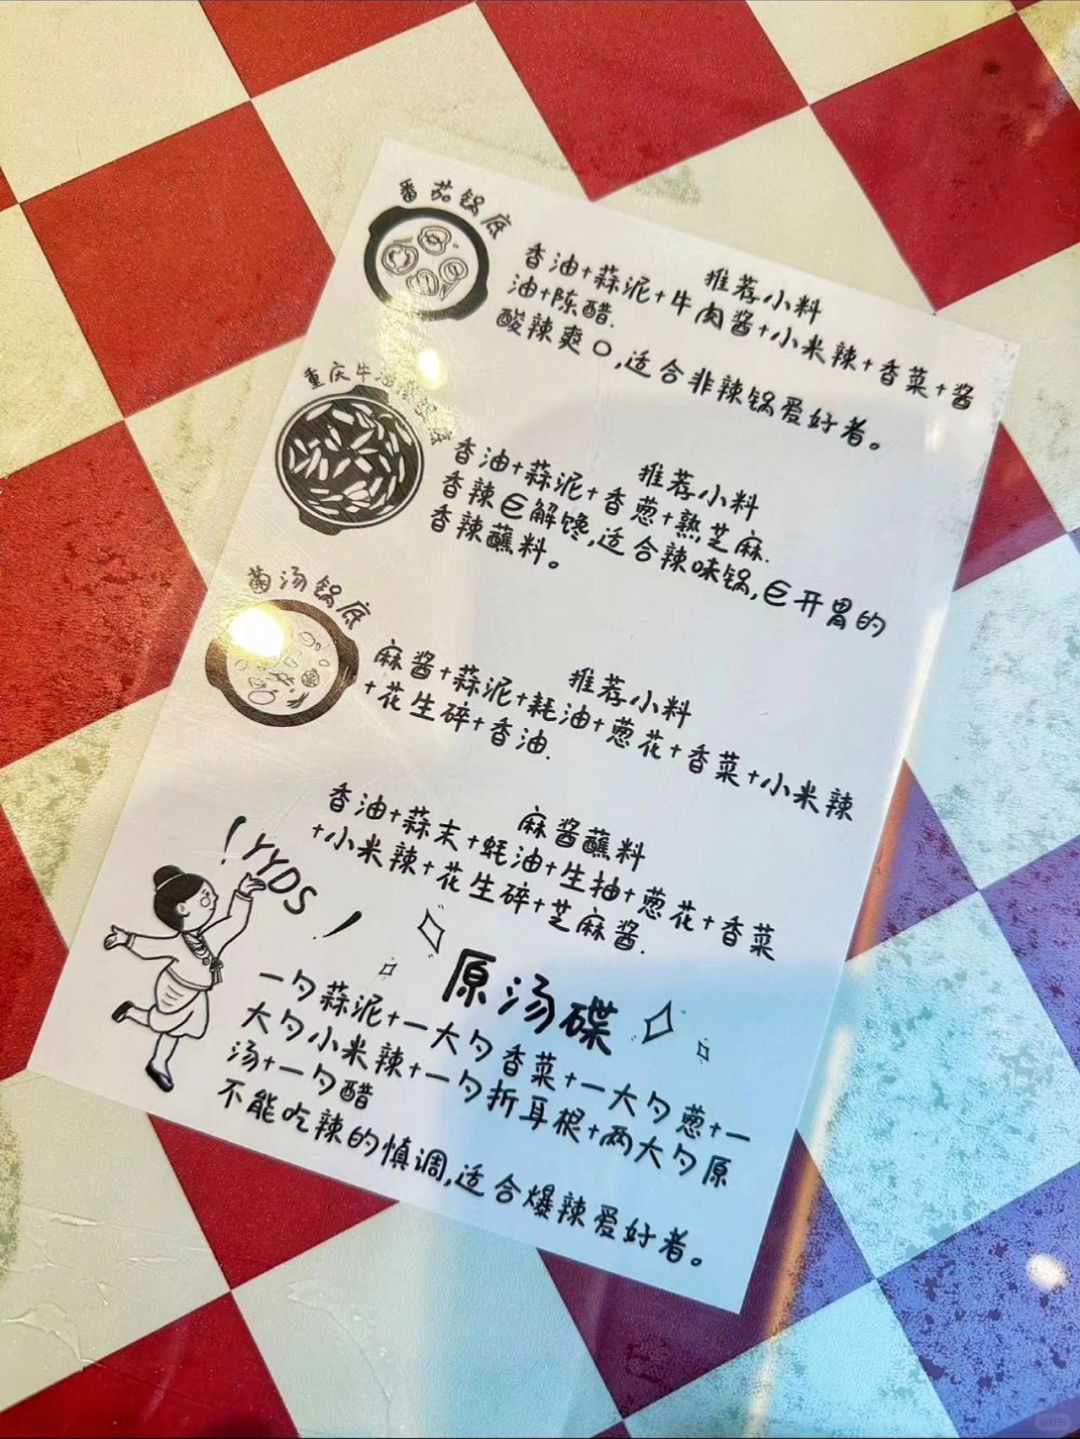 番茄锅底
推荐小料
香油+蒜泥+牛肉酱+小米辣+香菜+酱
油+陈醋.
酸辣爽口,适合非辣锅爱好者。
重庆牛油
推荐小料
香油+蒜泥+香葱+熟芝麻.
香辣巨解馋,适合辣味锅,巨开胃的
香辣蘸料。
菌汤锅底
推荐小料
麻酱+蒜泥+耗油+葱花+香菜+小米辣
+花生碎+香油.
麻酱蘸料
香油+蒜末+蚝油+生抽+葱花+香菜
+小米辣+花生碎+芝麻酱.
YYDS
原汤碟
一勺蒜泥+一大勺香菜+一大勺葱+一
大勺小米辣+一勺折耳根+两大勺原
汤+一勺醋
不能吃辣的慎调,适合爆辣爱好者。
小红书